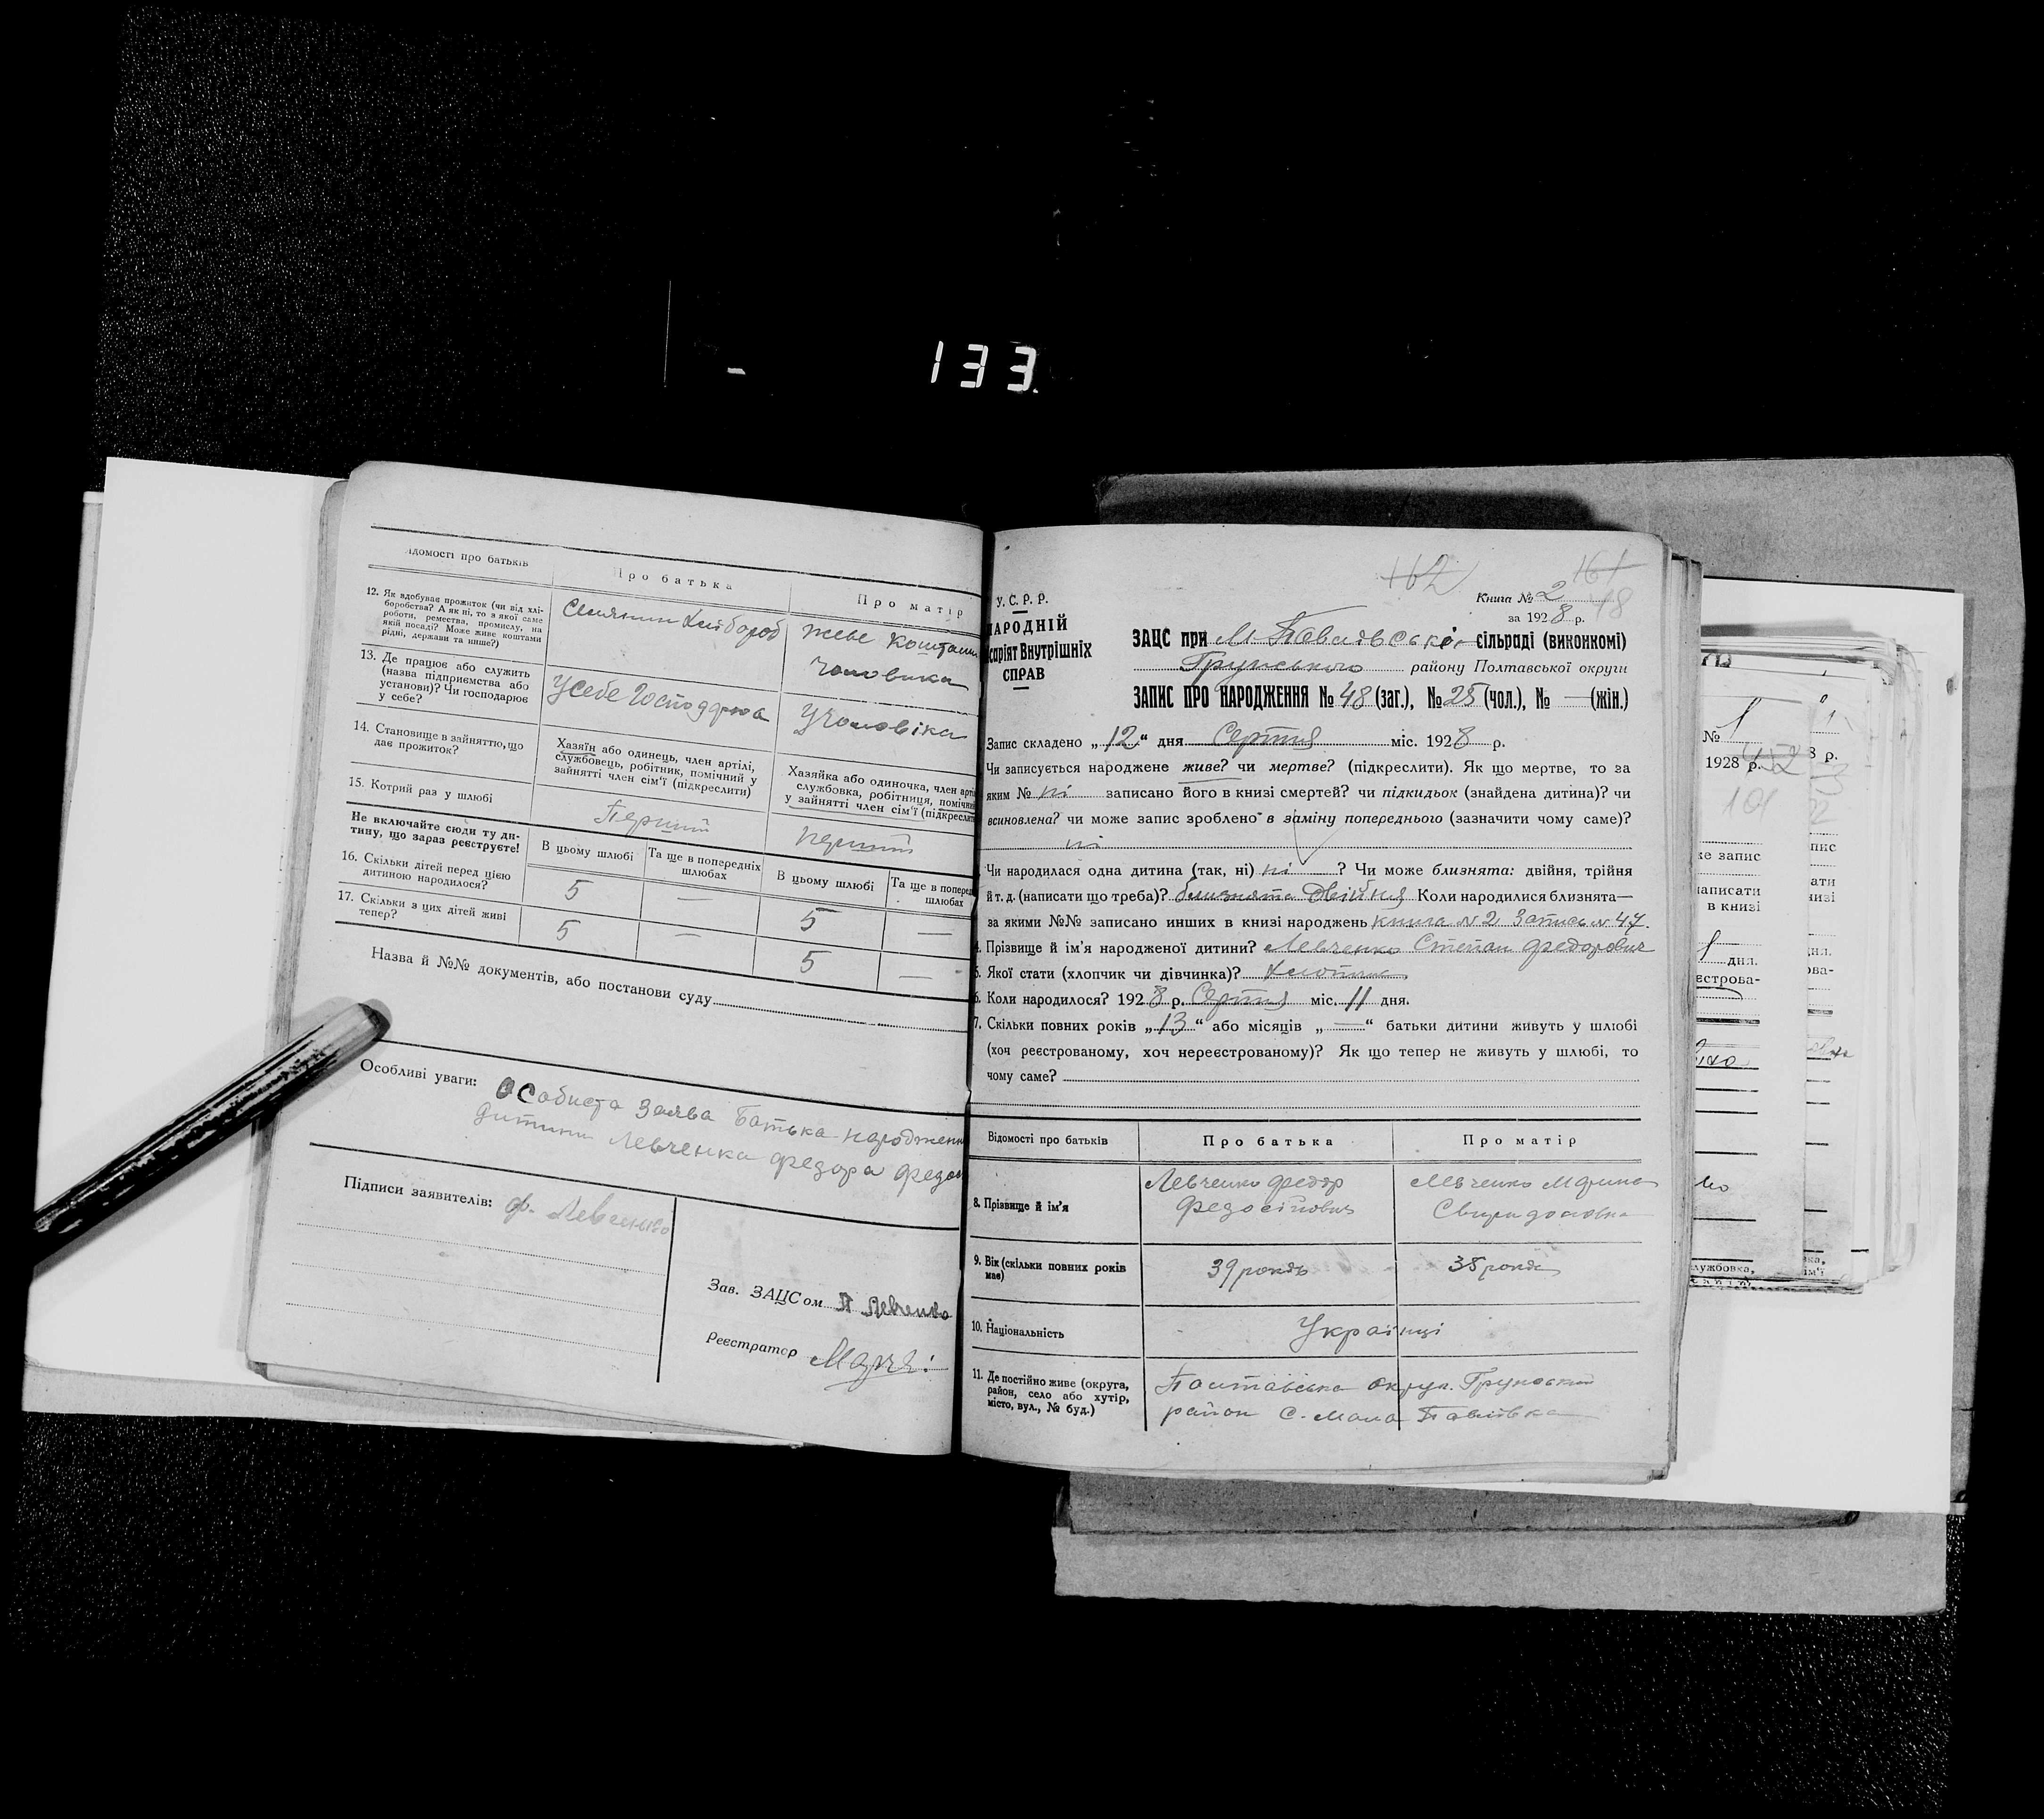 133.
ідомості про батьків
Про батька
Про матір
12. Як здобував прожиток (чи від хлі-
боробства? А як ні, то з якої саме
роботи, ремества, промислу, на
якій посаді? Може живе коштами
рідні, держави та инше?)
Селянин Хлібороб
живе коштами
чоловіка
13. Де працює або служить
(назва підприємства або
установи)? Чи господарює
у себе?
У себе Господарює
У чоловіка
14. Становище в зайняттю, що
дає прожиток?
Хазяїн або одинець, член артілі,
службовець, робітник, помічний у
зайнятті член сім'ї (підкреслити)
Хазяйка або одиночка, член арті
службовка, робітниця, помічни
у зайнятті член сім'ї (підкреслити
15. Котрий раз у шлюбі
Перший
перший
Не включайте сюди ту ди-
тину, що зараз реєструєте!
В цьому шлюбі
Та ще в попередніх
шлюбах
В цьому шлюбі
Та ще в поперед
шлюбах
16. Скільки дітей перед цією
дитиною народилося?
5 — 5 —
17. Скільки з цих дітей живі
тепер?
5 — 5 —
Назва й №№ документів, або постанови суду
Особливі уваги: Особиста заява Батька народженн
дитини Левченка Федора Федос
Підписи заявителів: Ф. Левченко
Зав. ЗАЦСом Левченко
Реєстратор
162 161
Книга № 2 48
за 1928 р.
У.С.Р.Р.
НАРОДНІЙ
саріят Внутрішніх
СПРАВ
ЗАЦС при М Павлівській сільраді (виконкомі)
Грунського району Полтавської округи
ЗАПИС ПРО НАРОДЖЕННЯ № 48 (заг.), № 25 (чол.), № — (жін.)
Запис складено „12“ дня Серпня міс. 1928 р.
Чи записується народжене живе? чи мертве? (підкреслити). Як що мертве, то за
яким № ні записано його в книзі смертей? чи підкидьок (знайдена дитина)? чи
всиновлена? чи може запис зроблено в заміну попереднього (зазначити чому саме)?
ні
Чи народилася одна дитина (так, ні) ні ? Чи може близнята: двійня, трійня
й т. д. (написати що треба)? близнята Двійня Коли народилися близнята—
за якими №№ записано инших в книзі народжень книга № 2 Запись № 47.
4. Прізвище й ім'я народженої дитини? Левченко Степан Федорович
5. Якої стати (хлопчик чи дівчинка)? Хлопчик
6. Коли народилося? 1928 р. Серпня міс. 11 дня.
7. Скільки повних років „13“ або місяців „—“ батьки дитини живуть у шлюбі
(хоч реєстрованому, хоч нереєстрованому)? Як що тепер не живуть у шлюбі, то
чому саме?
Відомості про батьків
Про батька
Про матір
8. Прізвище й ім'я
Левченко Федор
Федосійович
Левченко Марина
Свиридоновна
9. Вік (скільки повних років
має)
39 років
38 років
10. Національність
Українці
11. Де постійно живе (округа,
район, село або хутір,
місто, вул., № буд.)
Полтавська округа. Грунський
район С. Мала Павлівка
№ 1
1928 р. 152
8 р.
101
же запис
написати
в книзі
дня.
єстрова-
лужбовка,
пис
ати
низі
дня.
ова-
вка,
ім'ї